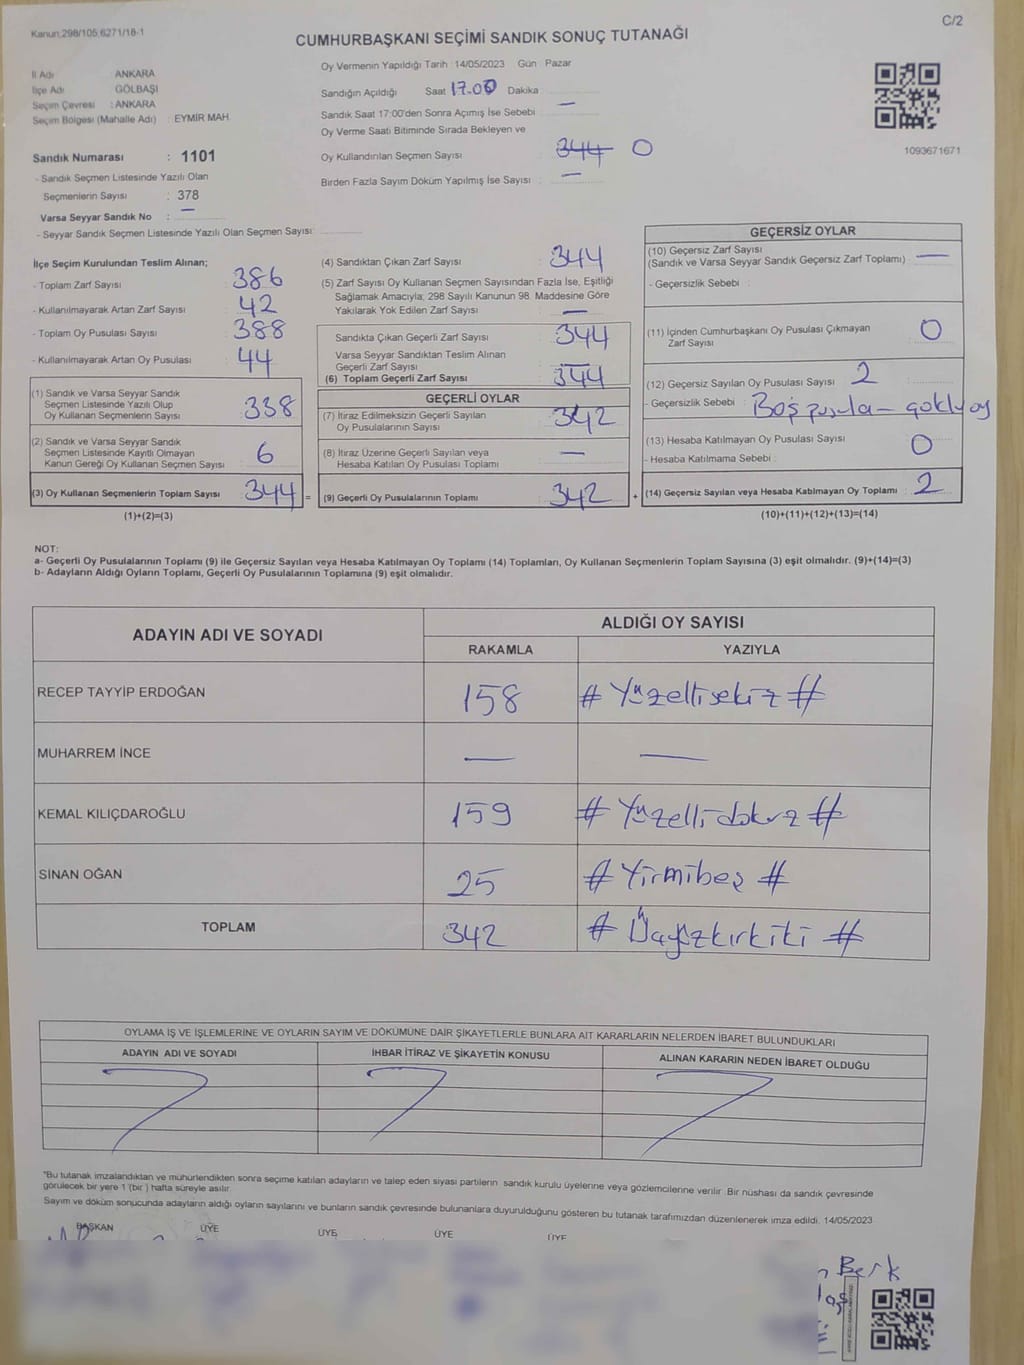 Kanun:298/105,6271/18-1
C/2
CUMHURBAŞKANI SEÇİMİ SANDIK SONUÇ TUTANAĞI
İl Adı : ANKARA
İlçe Adı : GÖLBAŞI
Seçim Çevresi : ANKARA
Seçim Bölgesi (Mahalle Adı) : EYMİR MAH.
Sandık Numarası : 1101
- Sandık Seçmen Listesinde Yazılı Olan
Seçmenlerin Sayısı : 378
Varsa Seyyar Sandık No : —
- Seyyar Sandık Seçmen Listesinde Yazılı Olan Seçmen Sayısı:
Oy Vermenin Yapıldığı Tarih : 14/05/2023 Gün : Pazar
Sandığın Açıldığı Saat 17.00 Dakika :
Sandık Saat 17:00'den Sonra Açımış İse Sebebi : —
Oy Verme Saati Bitiminde Sırada Bekleyen ve
Oy Kullandırılan Seçmen Sayısı : 344 0
Birden Fazla Sayım Döküm Yapılmış İse Sayısı : —
1093671671
İlçe Seçim Kurulundan Teslim Alınan;
- Toplam Zarf Sayısı : 386
- Kullanılmayarak Artan Zarf Sayısı : 42
- Toplam Oy Pusulası Sayısı : 388
- Kullanılmayarak Artan Oy Pusulası : 44
(1) Sandık ve Varsa Seyyar Sandık
Seçmen Listesinde Yazılı Olup
Oy Kullanan Seçmenlerin Sayısı : 338
(2) Sandık ve Varsa Seyyar Sandık
Seçmen Listesinde Kayıtlı Olmayan
Kanun Gereği Oy Kullanan Seçmen Sayısı : 6
(3) Oy Kullanan Seçmenlerin Toplam Sayısı : 344 =
(1)+(2)=(3)
(4) Sandıktan Çıkan Zarf Sayısı : 344
(5) Zarf Sayısı Oy Kullanan Seçmen Sayısından Fazla İse, Eşitliği
Sağlamak Amacıyla; 298 Sayılı Kanunun 98. Maddesine Göre
Yakılarak Yok Edilen Zarf Sayısı : —
Sandıkta Çıkan Geçerli Zarf Sayısı : 344
Varsa Seyyar Sandıktan Teslim Alınan
Geçerli Zarf Sayısı : —
(6) Toplam Geçerli Zarf Sayısı : 344
GEÇERLİ OYLAR
(7) İtiraz Edilmeksizin Geçerli Sayılan
Oy Pusulalarının Sayısı : 342
(8) İtiraz Üzerine Geçerli Sayılan veya
Hesaba Katılan Oy Pusulası Toplamı : —
(9) Geçerli Oy Pusulalarının Toplamı : 342 +
GEÇERSİZ OYLAR
(10) Geçersiz Zarf Sayısı
(Sandık ve Varsa Seyyar Sandık Geçersiz Zarf Toplamı) : —
- Geçersizlik Sebebi :
(11) İçinden Cumhurbaşkanı Oy Pusulası Çıkmayan
Zarf Sayısı : 0
(12) Geçersiz Sayılan Oy Pusulası Sayısı : 2
- Geçersizlik Sebebi : Boş pusula - çoklu oy
(13) Hesaba Katılmayan Oy Pusulası Sayısı : 0
- Hesaba Katılmama Sebebi :
(14) Geçersiz Sayılan veya Hesaba Katılmayan Oy Toplamı : 2
(10)+(11)+(12)+(13)=(14)
NOT:
a- Geçerli Oy Pusulalarının Toplamı (9) ile Geçersiz Sayılan veya Hesaba Katılmayan Oy Toplamı (14) Toplamları, Oy Kullanan Seçmenlerin Toplam Sayısına (3) eşit olmalıdır. (9)+(14)=(3)
b- Adayların Aldığı Oyların Toplamı, Geçerli Oy Pusulalarının Toplamına (9) eşit olmalıdır.
ADAYIN ADI VE SOYADI
ALDIĞI OY SAYISI
RAKAMLA YAZIYLA
RECEP TAYYİP ERDOĞAN 158 # Yüzellisekiz #
MUHARREM İNCE — —
KEMAL KILIÇDAROĞLU 159 # Yüzellidokuz #
SİNAN OĞAN 25 # Yirmibeş #
TOPLAM 342 # Üçyüzkırkiki #
OYLAMA İŞ VE İŞLEMLERİNE VE OYLARIN SAYIM VE DÖKÜMÜNE DAİR ŞİKAYETLERLE BUNLARA AİT KARARLARIN NELERDEN İBARET BULUNDUKLARI
ADAYIN ADI VE SOYADI İHBAR İTİRAZ VE ŞİKAYETİN KONUSU ALINAN KARARIN NEDEN İBARET OLDUĞU
"Bu tutanak imzalandıktan ve mühürlendikten sonra seçime katılan adayların ve talep eden siyasi partilerin sandık kurulu üyelerine veya gözlemcilerine verilir. Bir nüshası da sandık çevresinde
görülecek bir yere 1 (bir) hafta süreyle asılır.
Sayım ve döküm sonucunda adayların aldığı oyların sayılarını ve bunların sandık çevresinde bulunanlara duyurulduğunu gösteren bu tutanak tarafımızdan düzenlenerek imza edildi. 14/05/2023
BAŞKAN ÜYE ÜYE ÜYE ÜYE
Berk